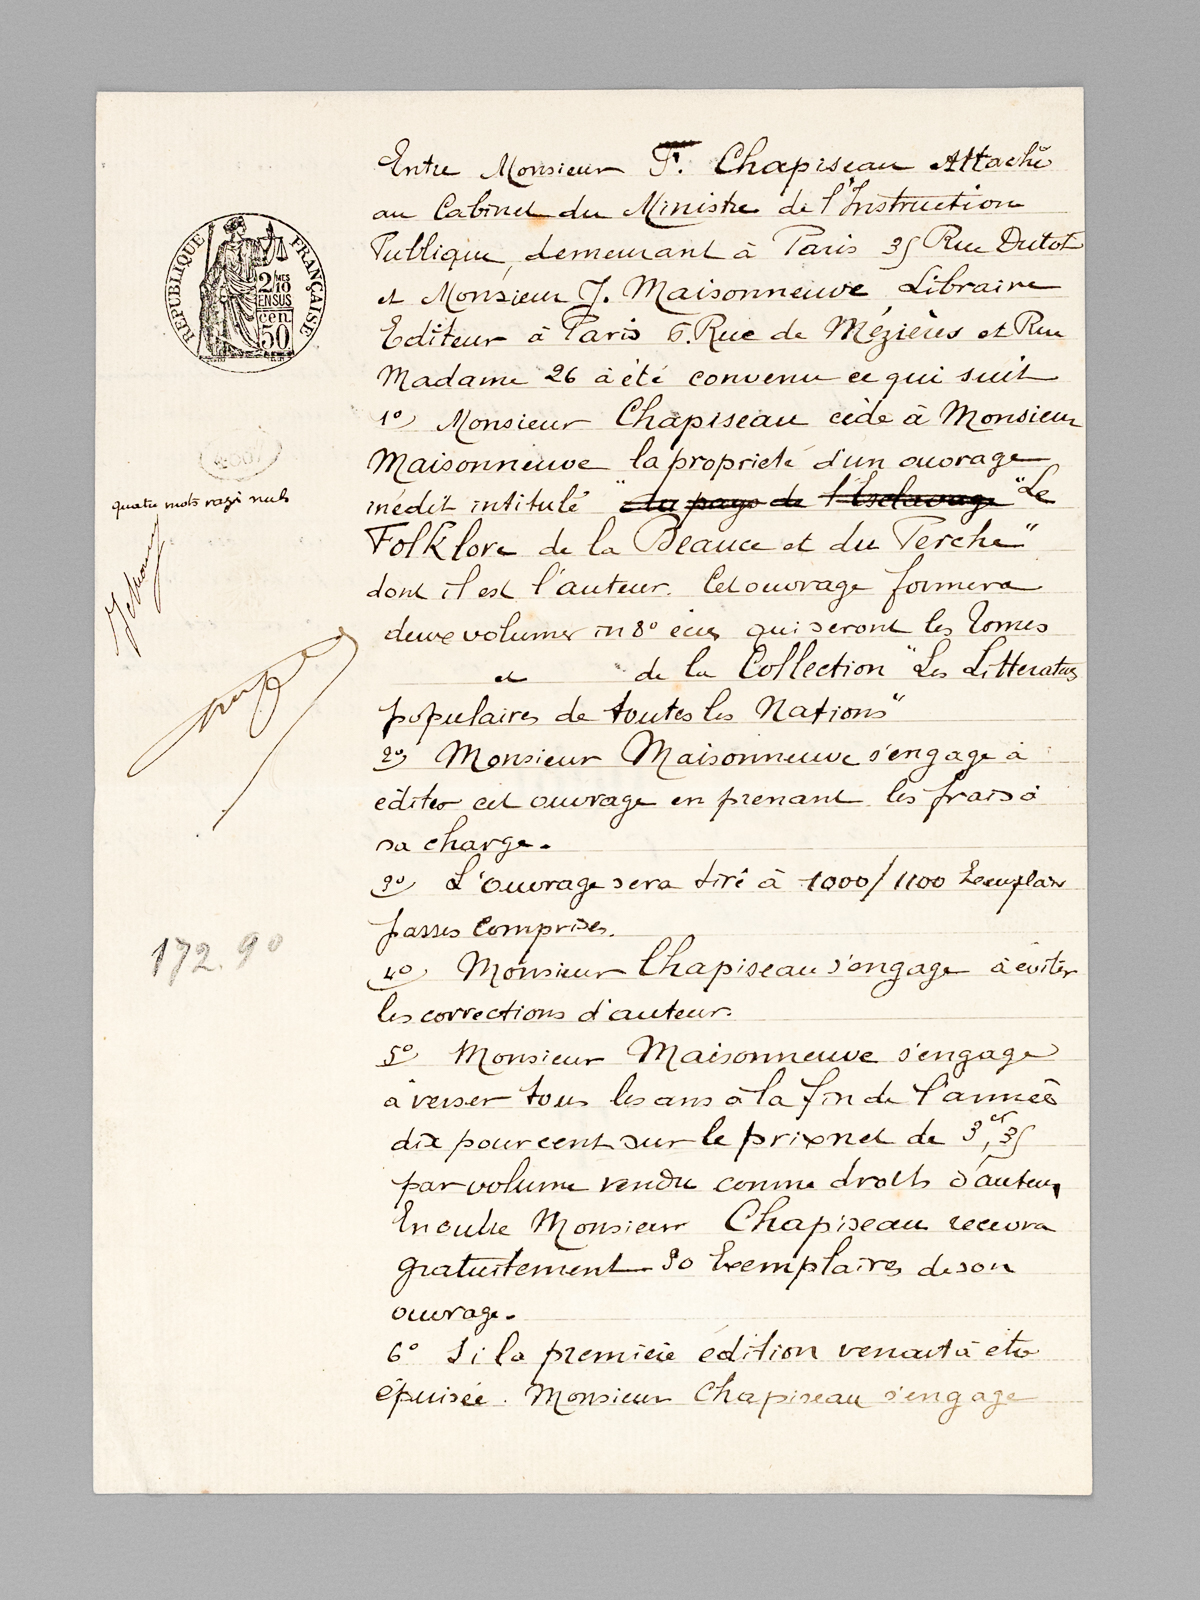 Entre Monsieur F. Chapiseau Attaché
au Cabinet du Ministre de l'Instruction
Publique, demeurant à Paris 35 Rue Dutot
et Monsieur J. Maisonneuve Libraire
Editeur à Paris 6. Rue de Mézières et Rue
Madame 26 à été convenu ce qui suit
1º Monsieur Chapiseau cède à Monsieur
Maisonneuve la propriété d'un ouvrage
inédit intitulé "du pays de l'Esclavage "Le
Folklore de la Beauce et du Perche"
dont il est l'auteur. Cet ouvrage formera
deux volumes in 8º écus qui seront les Tomes
et de la Collection "Les Litteratures
populaires de toutes les Nations"
2º Monsieur Maisonneuve s'engage à
éditer cet ouvrage en prenant les frais à
sa charge.
3º L'ouvrage sera tiré à 1000/1100 Exemplaires
passes comprises.
4º Monsieur Chapiseau s'engage à éviter
les corrections d'auteur.
5º Monsieur Maisonneuve s'engage
à verser tous les ans à la fin de l'année
dix pour cent sur le prix net de 3,fr 35
par volume vendu comme droits d'auteur
En outre Monsieur Chapiseau recevra
gratuitement 30 Exemplaires de son
ouvrage.
6º Si la première édition venait à être
épuisée. Monsieur Chapiseau s'engage
RÉPUBLIQUE FRANÇAISE
2/10MES
EN SUS
cen
50
quatre mots rayé nuls
172.90